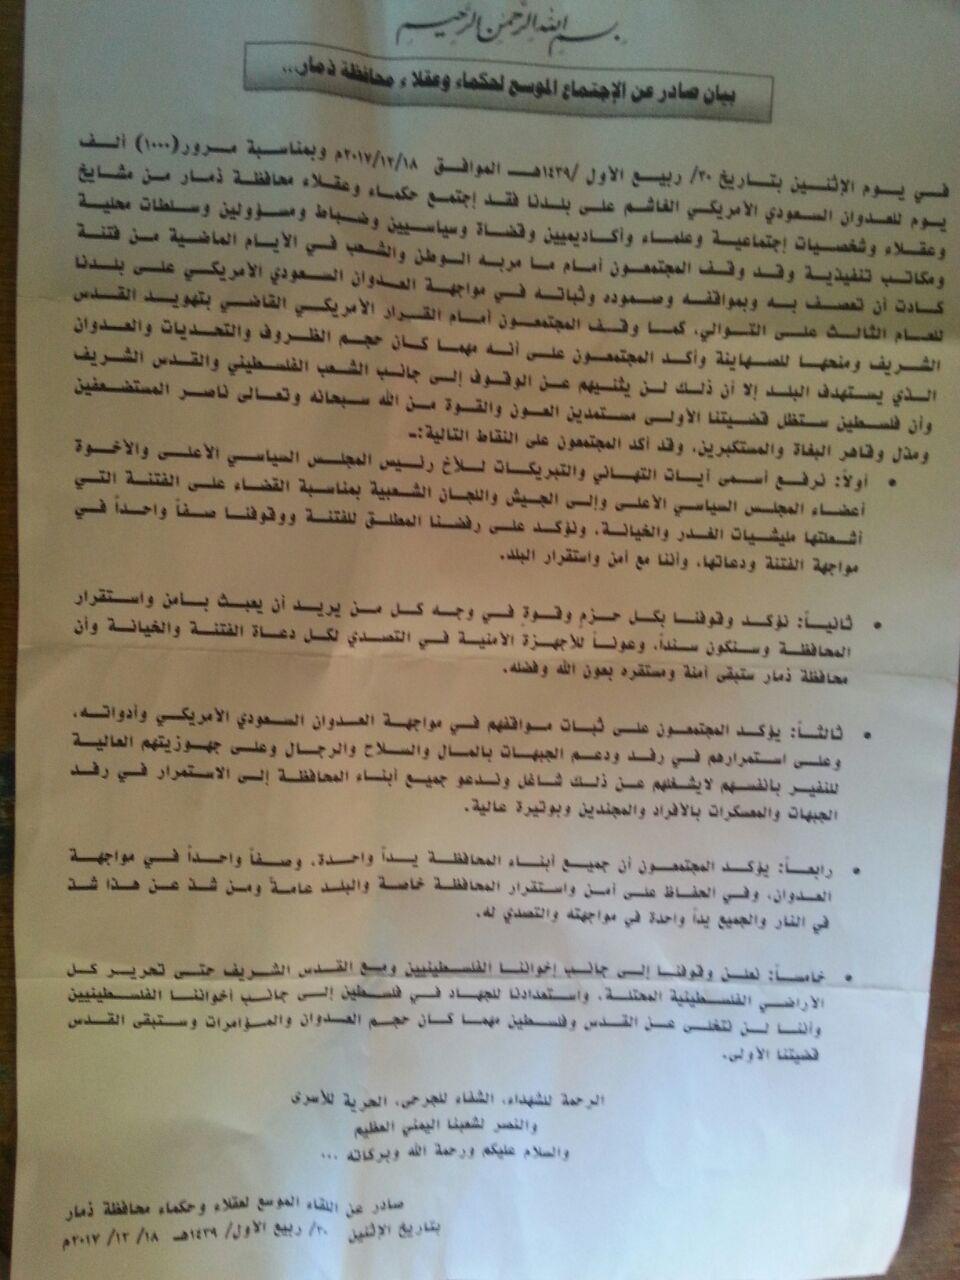 بسم الله الرحمن الرحيم
بيان صادر عن الإجتماع الموسع لحكماء وعقلاء محافظة ذمار...
في يوم الإثنين بتاريخ ٣٠/ ربيع الأول /١٤٣٩هـ الموافق ٢٠١٧/١٢/١٨م وبمناسبة مرور(١٠٠٠) ألف
يوم للعدوان السعودي الأمريكي الغاشم على بلدنا فقد إجتمع حكماء وعقلاء محافظة ذمار من مشايخ
وعقلاء وشخصيات إجتماعية وعلماء وأكاديميين وقضاة وسياسيين وضباط ومسؤولين وسلطات محلية
ومكاتب تنفيذية وقد وقف المجتمعون أمام ما مربه الوطن والشعب في الأيام الماضية من فتنة
كادت أن تعصف به وبمواقفه وصموده وثباته في مواجهة العدوان السعودي الأمريكي على بلدنا
للعام الثالث على التوالي، كما وقف المجتمعون أمام القرار الأمريكي القاضي بتهويد القدس
الشريف ومنحها للصهاينة وأكد المجتمعون على أنه مهما كان حجم الظروف والتحديات والعدوان
الذي يستهدف البلد إلا أن ذلك لن يثنيهم عن الوقوف إلى جانب الشعب الفلسطيني والقدس الشريف
وأن فلسطين ستظل قضيتنا الأولى مستمدين العون والقوة من الله سبحانه وتعالى ناصر المستضعفين
ومذل وقاهر البغاة والمستكبرين، وقد أكد المجتمعون على النقاط التالية:ـ
• أولاً: نرفع أسمى آيات التهاني والتبريكات للأخ رئيس المجلس السياسي الأعلى والأخوة
أعضاء المجلس السياسي الأعلى وإلى الجيش واللجان الشعبية بمناسبة القضاء على الفتنة التي
أشعلتها مليشيات الغدر والخيانة، ونؤكد على رفضنا المطلق للفتنة ووقوفنا صفاً واحداً في
مواجهة الفتنة ودعاتها، وأننا مع أمن واستقرار البلد.
• ثانياً: نؤكد وقوفنا بكل حزم وقوة في وجه كل من يريد أن يعبث بأمن واستقرار
المحافظة وسنكون سنداً، وعوناً للأجهزة الأمنية في التصدي لكل دعاة الفتنة والخيانة وأن
محافظة ذمار ستبقى أمنة ومستقره بعون الله وفضله.
• ثالثاً: يؤكد المجتمعون على ثبات مواقفهم في مواجهة العدوان السعودي الأمريكي وأدواته،
وعلى استمرارهم في رفد ودعم الجبهات بالمال والسلاح والرجال وعلى جهوزيتهم العالية
للنفير بأنفسهم لايشغلهم عن ذلك شاغل وندعو جميع أبناء المحافظة إلى الاستمرار في رفد
الجبهات والمعسكرات بالأفراد والمجندين وبوتيرة عالية.
• رابعاً: يؤكد المجتمعون أن جميع أبناء المحافظة يداً واحدة، وصفاً واحداً في مواجهة
العدوان، وفي الحفاظ على أمن واستقرار المحافظة خاصة والبلد عامةً ومن شذ عن هذا شذ
في النار والجميع يداً واحدة في مواجهته والتصدي له.
• خامساً: نعلن وقوفنا إلى جانب إخواننا الفلسطينيين ومع القدس الشريف حتى تحرير كل
الأراضي الفلسطينية المحتلة، واستعدادنا للجهاد في فلسطين إلى جانب أخواننا الفلسطينيين
وأننا لن نتخلى عن القدس وفلسطين مهما كان حجم العدوان والمؤامرات وستبقى القدس
قضيتنا الأولى.
الرحمة للشهداء، الشفاء للجرحى، الحرية للأسرى
والنصر لشعبنا اليمني العظيم
والسلام عليكم ورحمة الله وبركاته ...
صادر عن اللقاء الموسع لعقلاء وحكماء محافظة ذمار
بتاريخ الإثنين ٣٠/ ربيع الاول/ ١٤٣٩هـ ١٨/ ١٢/ ٢٠١٧م